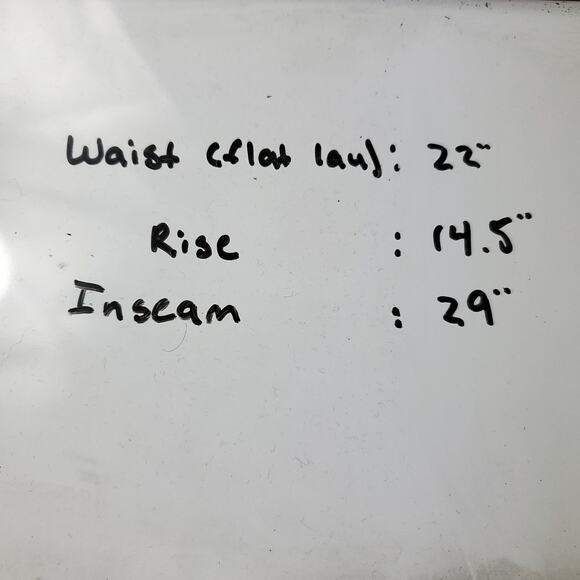 Waist (flat lay): 22"
Rise : 14.5"
Inseam : 29"